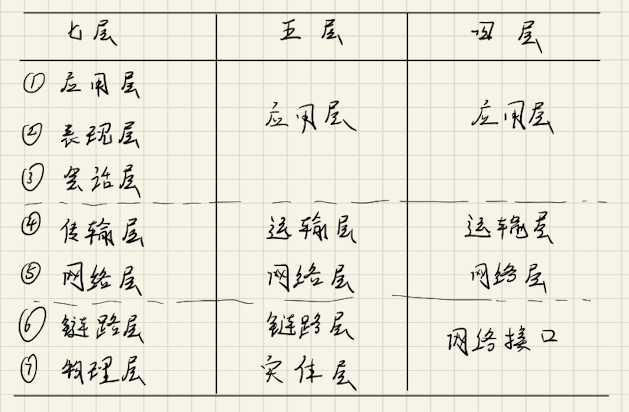 七层 五层 四层
① 应用层
应用层 应用层
② 表现层
③ 会话层
④ 传输层 运输层 运输层
⑤ 网络层 网络层 网络层
⑥ 链路层 链路层
网络接口
⑦ 物理层 实体层